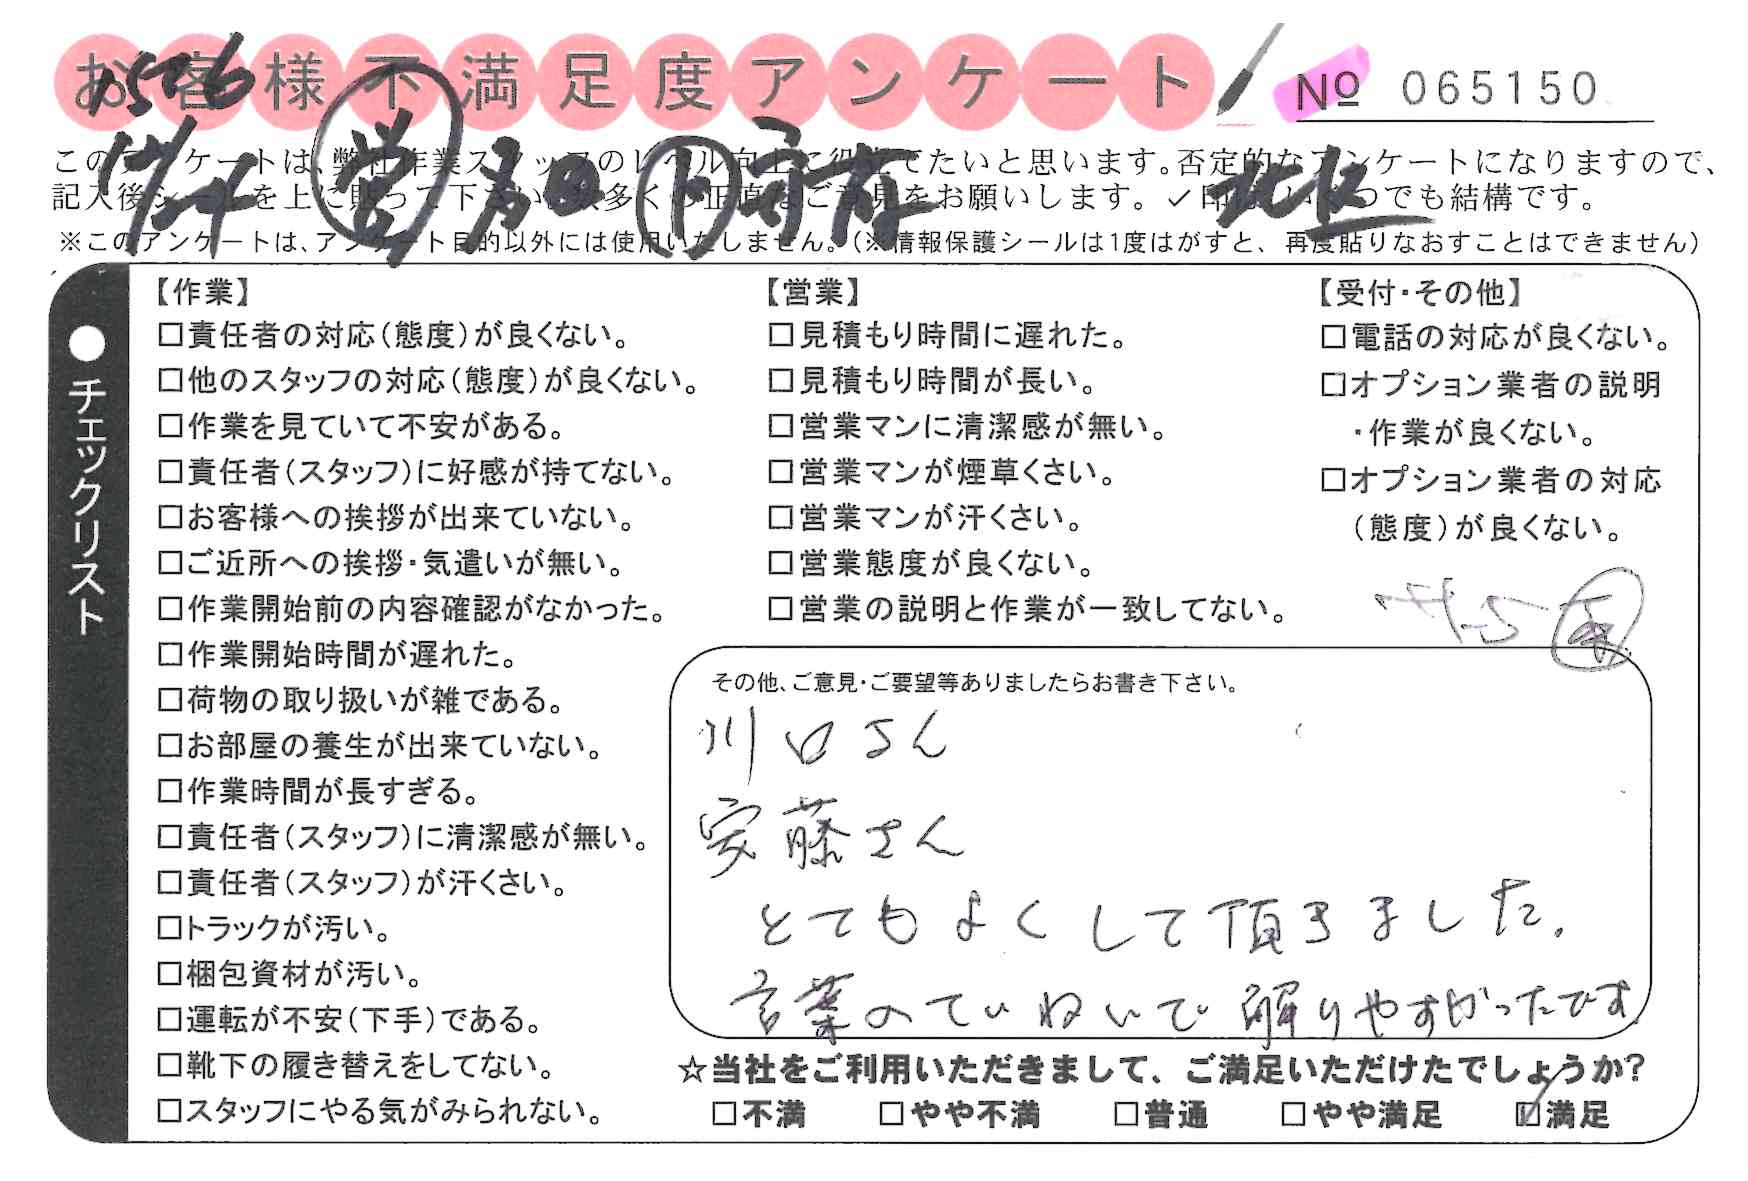 お客様不満足度アンケート
№ 065150
1576
このアンケートは、弊社作業スタッフのレベル向上に役立てたいと思います。否定的なアンケートになりますので、
記入後シールを上に貼って下さい。数多くの正直なご意見をお願いします。✓印はいくつでも結構です。
※このアンケートは、アンケート目的以外には使用いたしません。(※情報保護シールは1度はがすと、再度貼りなおすことはできません)
営
北区
●チェックリスト
【作業】
□責任者の対応(態度)が良くない。
□他のスタッフの対応(態度)が良くない。
□作業を見ていて不安がある。
□責任者(スタッフ)に好感が持てない。
□お客様への挨拶が出来ていない。
□ご近所への挨拶・気遣いが無い。
□作業開始前の内容確認がなかった。
□作業開始時間が遅れた。
□荷物の取り扱いが雑である。
□お部屋の養生が出来ていない。
□作業時間が長すぎる。
□責任者(スタッフ)に清潔感が無い。
□責任者(スタッフ)が汗くさい。
□トラックが汚い。
□梱包資材が汚い。
□運転が不安(下手)である。
□靴下の履き替えをしてない。
□スタッフにやる気がみられない。
【営業】
□見積もり時間に遅れた。
□見積もり時間が長い。
□営業マンに清潔感が無い。
□営業マンが煙草くさい。
□営業マンが汗くさい。
□営業態度が良くない。
□営業の説明と作業が一致してない。
【受付・その他】
□電話の対応が良くない。
□オプション業者の説明
・作業が良くない。
□オプション業者の対応
(態度)が良くない。
その他、ご意見・ご要望等ありましたらお書き下さい。
川口さん
安藤さん
とてもよくして頂きました。
言葉のていねいで解りやすかったです
☆当社をご利用いただきまして、ご満足いただけたでしょうか?
□不満 □やや不満 □普通 □やや満足 ☑満足